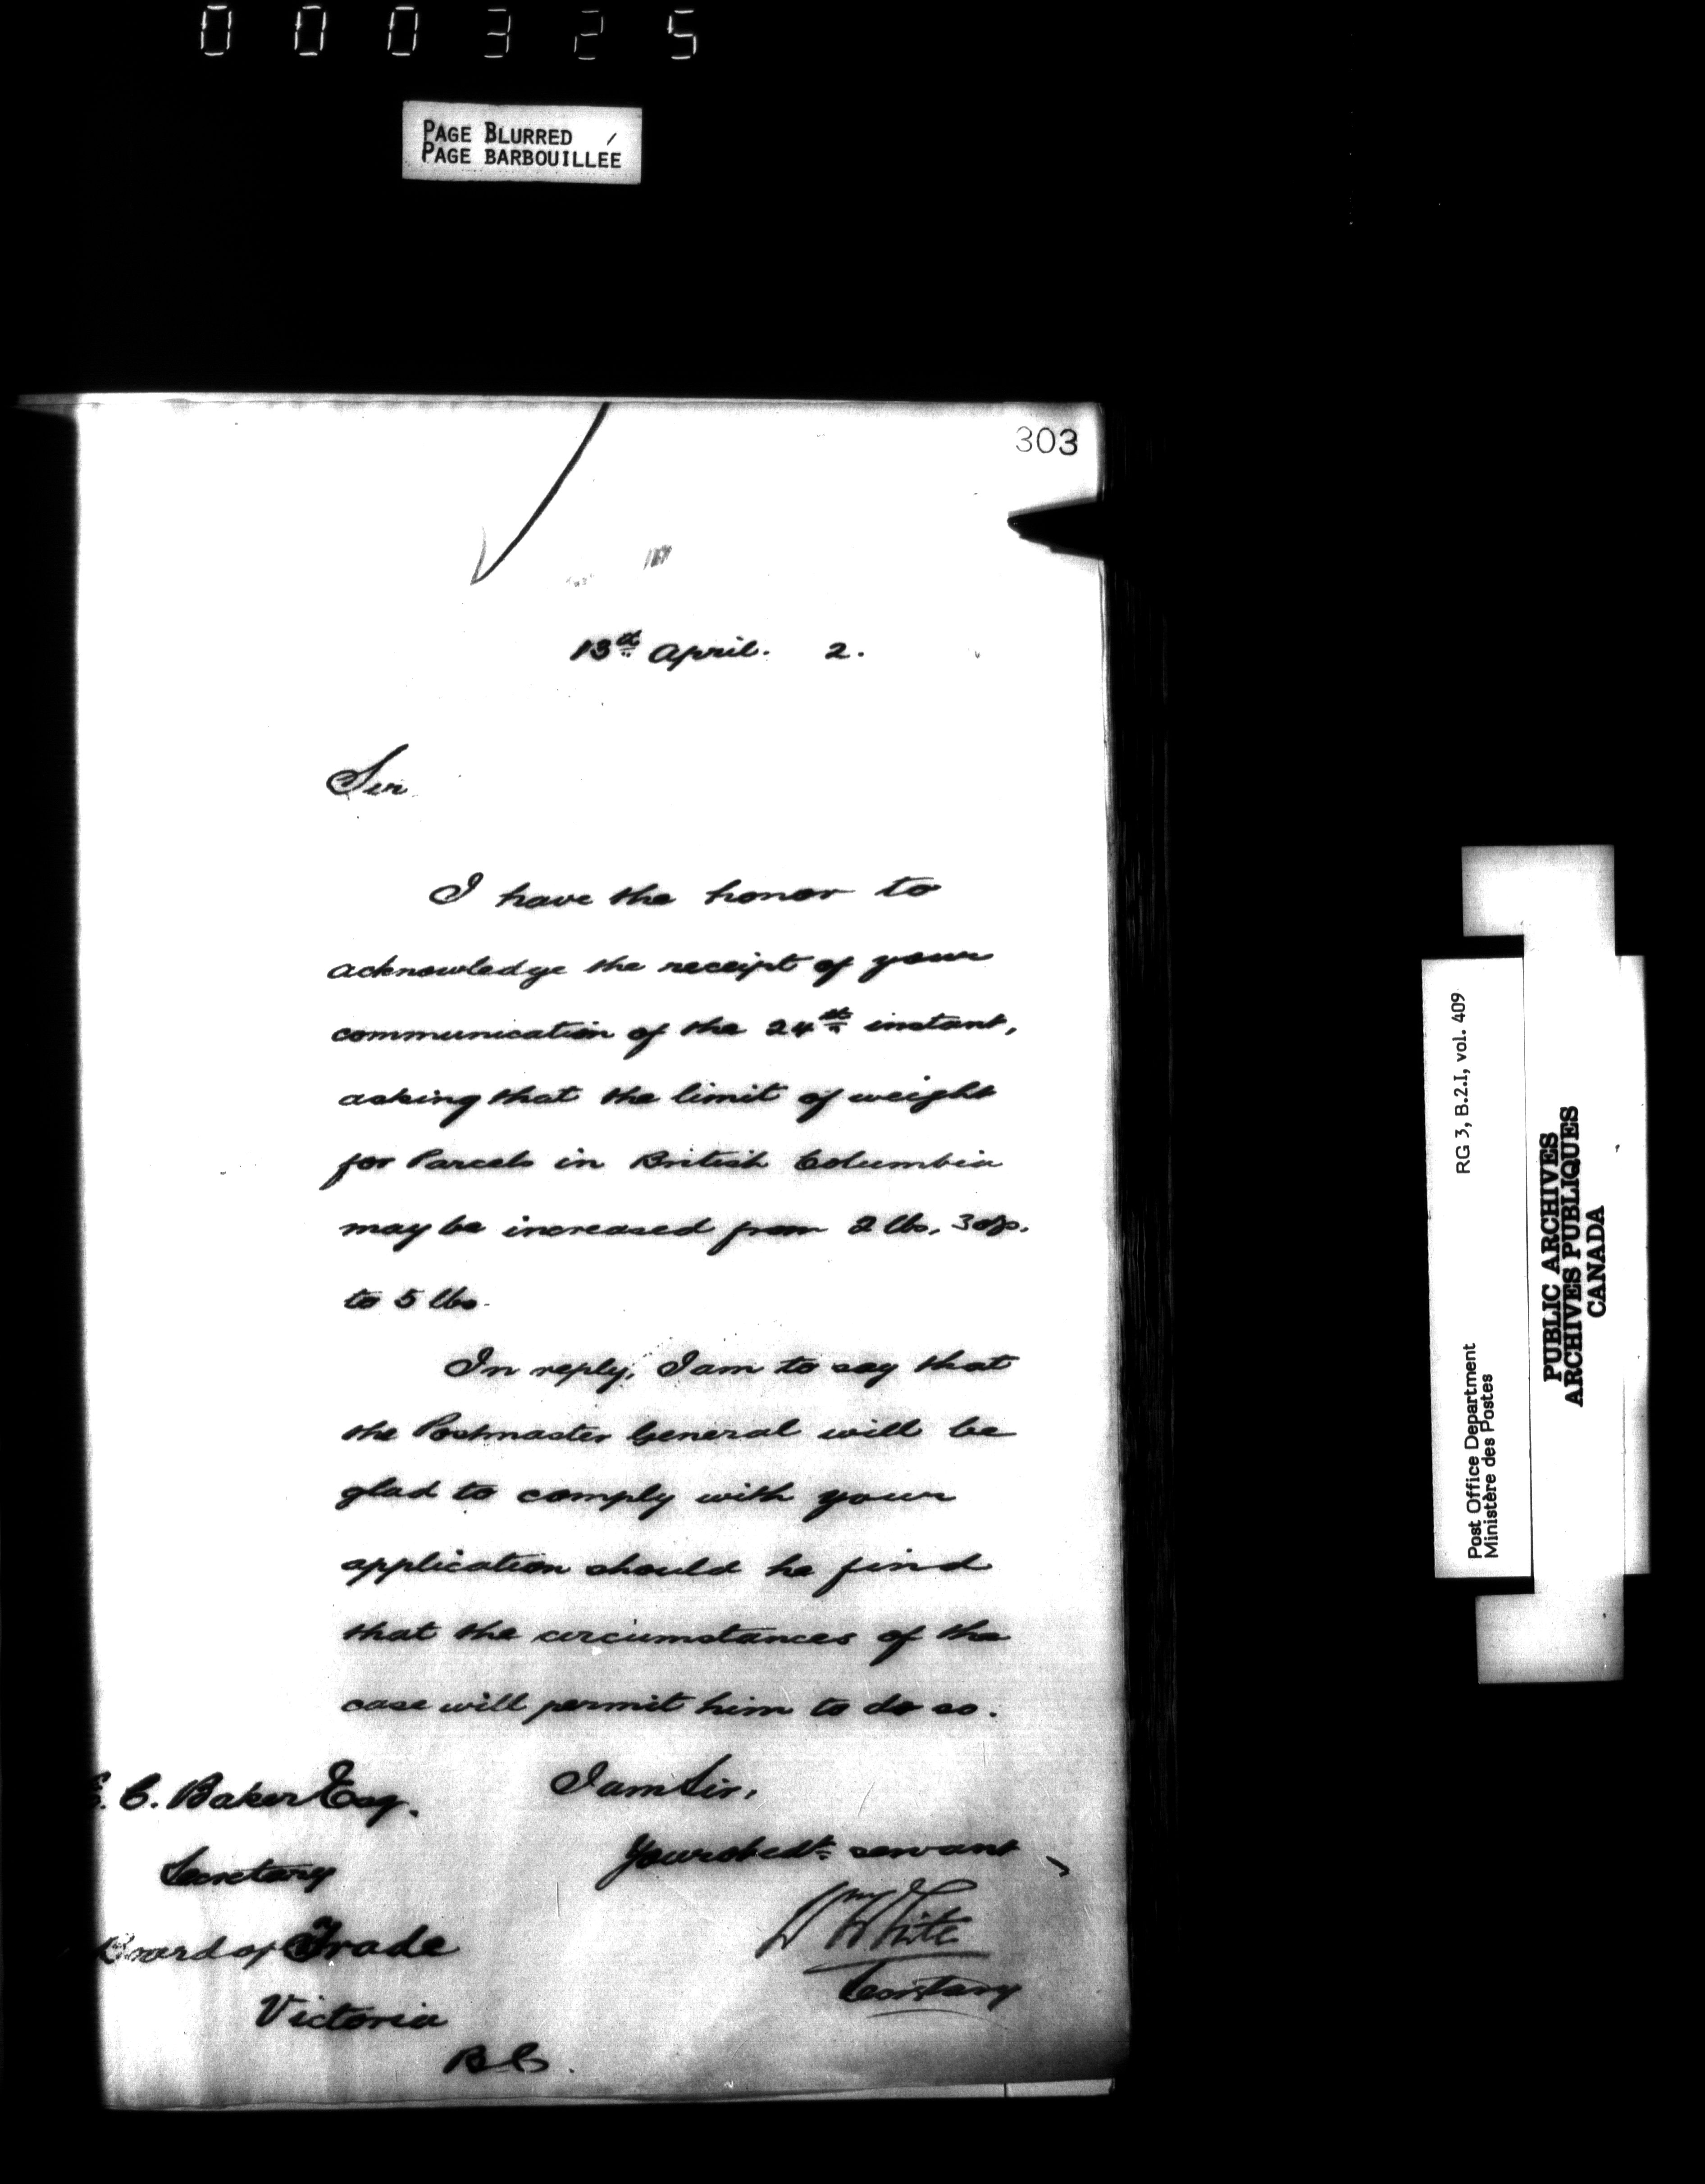 000325
PAGE BLURRED
PAGE BARBOUILLÉE
303
13th April. 2.
Sir
I have the honor to
acknowledge the receipt of your
communication of the 24th instant,
asking that the limit of weight
for Parcels in British Columbia
may be increased from 2 lbs. 3 oz.
to 5 lbs.
In reply, I am to say that
the Postmaster General will be
glad to comply with your
application should he find
that the circumstances of the
case will permit him to do so.
I am Sir,
Your obedt. servant
Wm White
Secretary
E. C. Baker Esq.
Secretary
Board of Trade
Victoria
B C.
Post Office Department RG 3, B.2.I, vol. 409
Ministère des Postes
PUBLIC ARCHIVES
ARCHIVES PUBLIQUES
CANADA